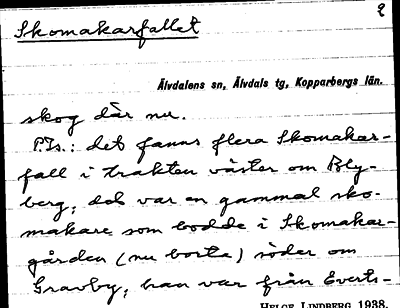 2
Skomakarfallet
Älvdalens sn, Älvdals tg, Kopparbergs län.
skog där nu.
P.Is.: det fanns flera Skomakar-
fall i trakten väster om Bly-
berg, det var en gammal sko-
makare som bodde i Skomakar-
gården (nu borta) söder om
Gravby, han var från Everts-
HELGE LINDBERG 1938.